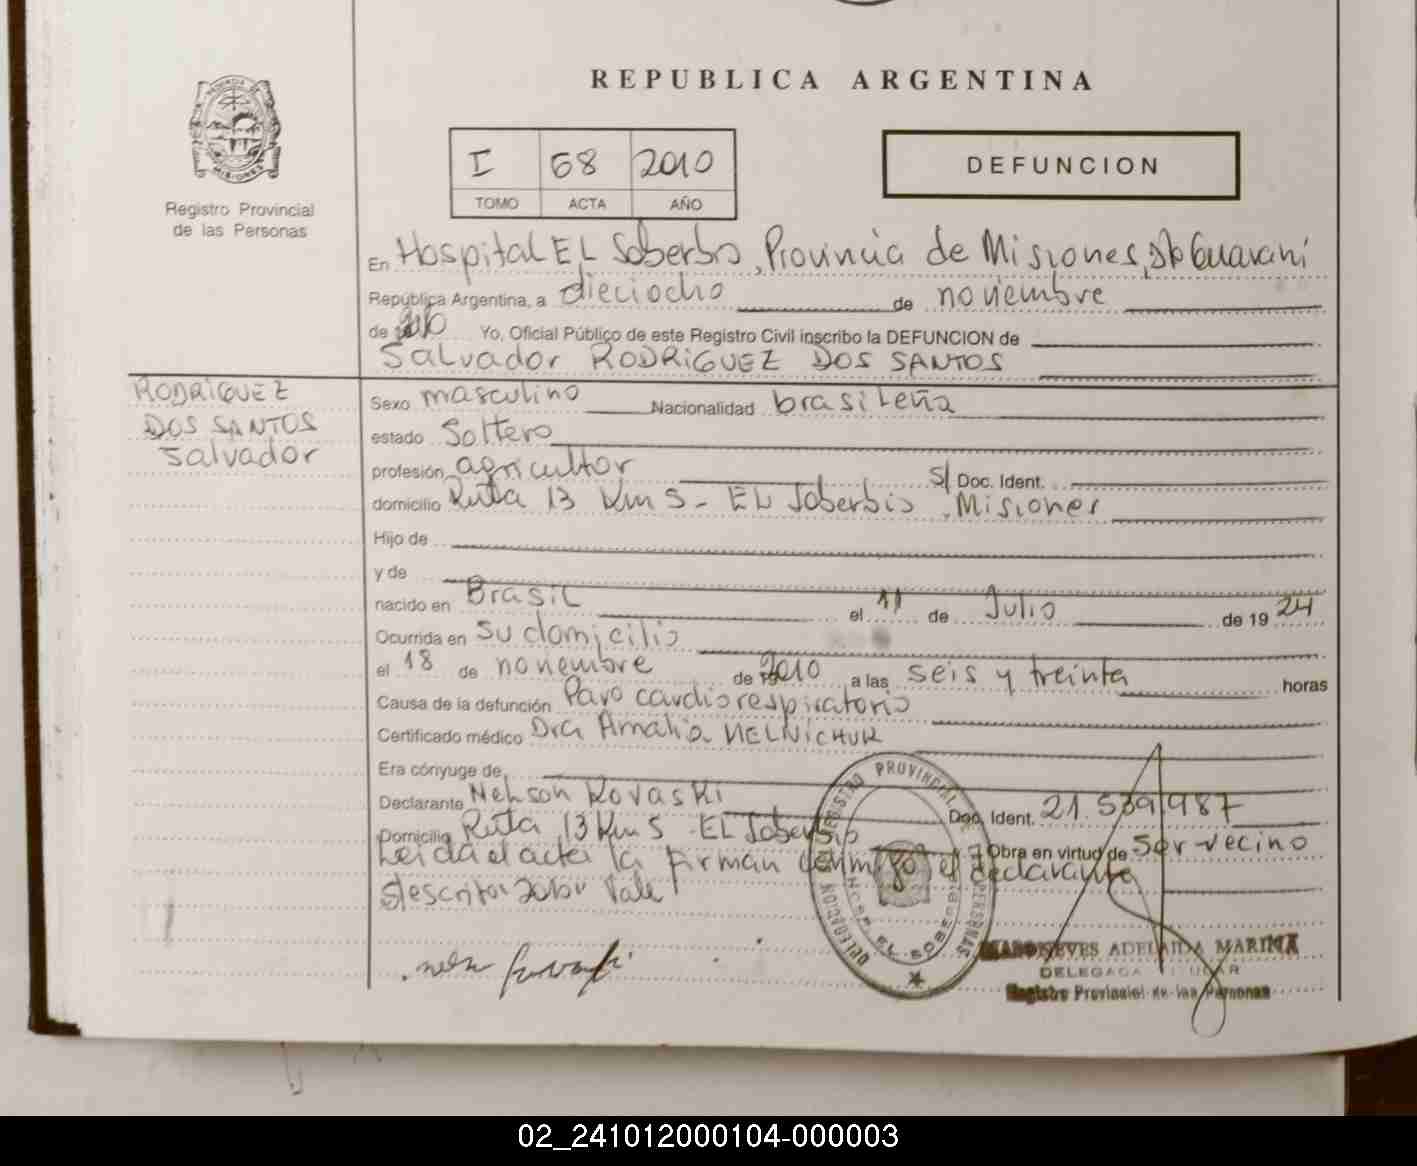 REPUBLICA ARGENTINA
PROVINCIA DE MISIONES
Registro Provincial
de las Personas
I 68 2010
TOMO ACTA AÑO
DEFUNCION
En Hospital EL Soberbio, Provincia de Misiones, Dto Guaraní
República Argentina, a dieciocho de noviembre
de 2010 Yo, Oficial Público de este Registro Civil inscribo la DEFUNCION de
Salvador RODRIGUEZ DOS SANTOS
RODRIGUEZ
DOS SANTOS
Salvador
Sexo masculino Nacionalidad brasileña
estado Soltero
profesión agricultor S/ Doc. Ident.
domicilio Ruta 13 Km 5 - EL Soberbio, Misiones
Hijo de
y de
nacido en Brasil el 11 de Julio de 19 24
Ocurrida en su domicilio
el 18 de noviembre de 2010 a las seis y treinta horas
Causa de la defunción Paro cardiorespiratorio
Certificado médico Dra Amalia MELNICHUK
Era cónyuge de
Declarante Nelson Kovaski Doc. Ident. 21.539.987
Domicilio Ruta 13 Km 5 - EL Soberbio Obra en virtud de Ser vecino
Leida el acta la firman conmigo el declarante
S/escrito: 2010 Vale
DELEGACION REGISTRO PROVINCIAL DE LAS PERSONAS
EL SOBERBIO
NEVES ADELAIDA MARINA
DELEGADA TITULAR
Registro Provincial de las Personas
02_241012000104-000003